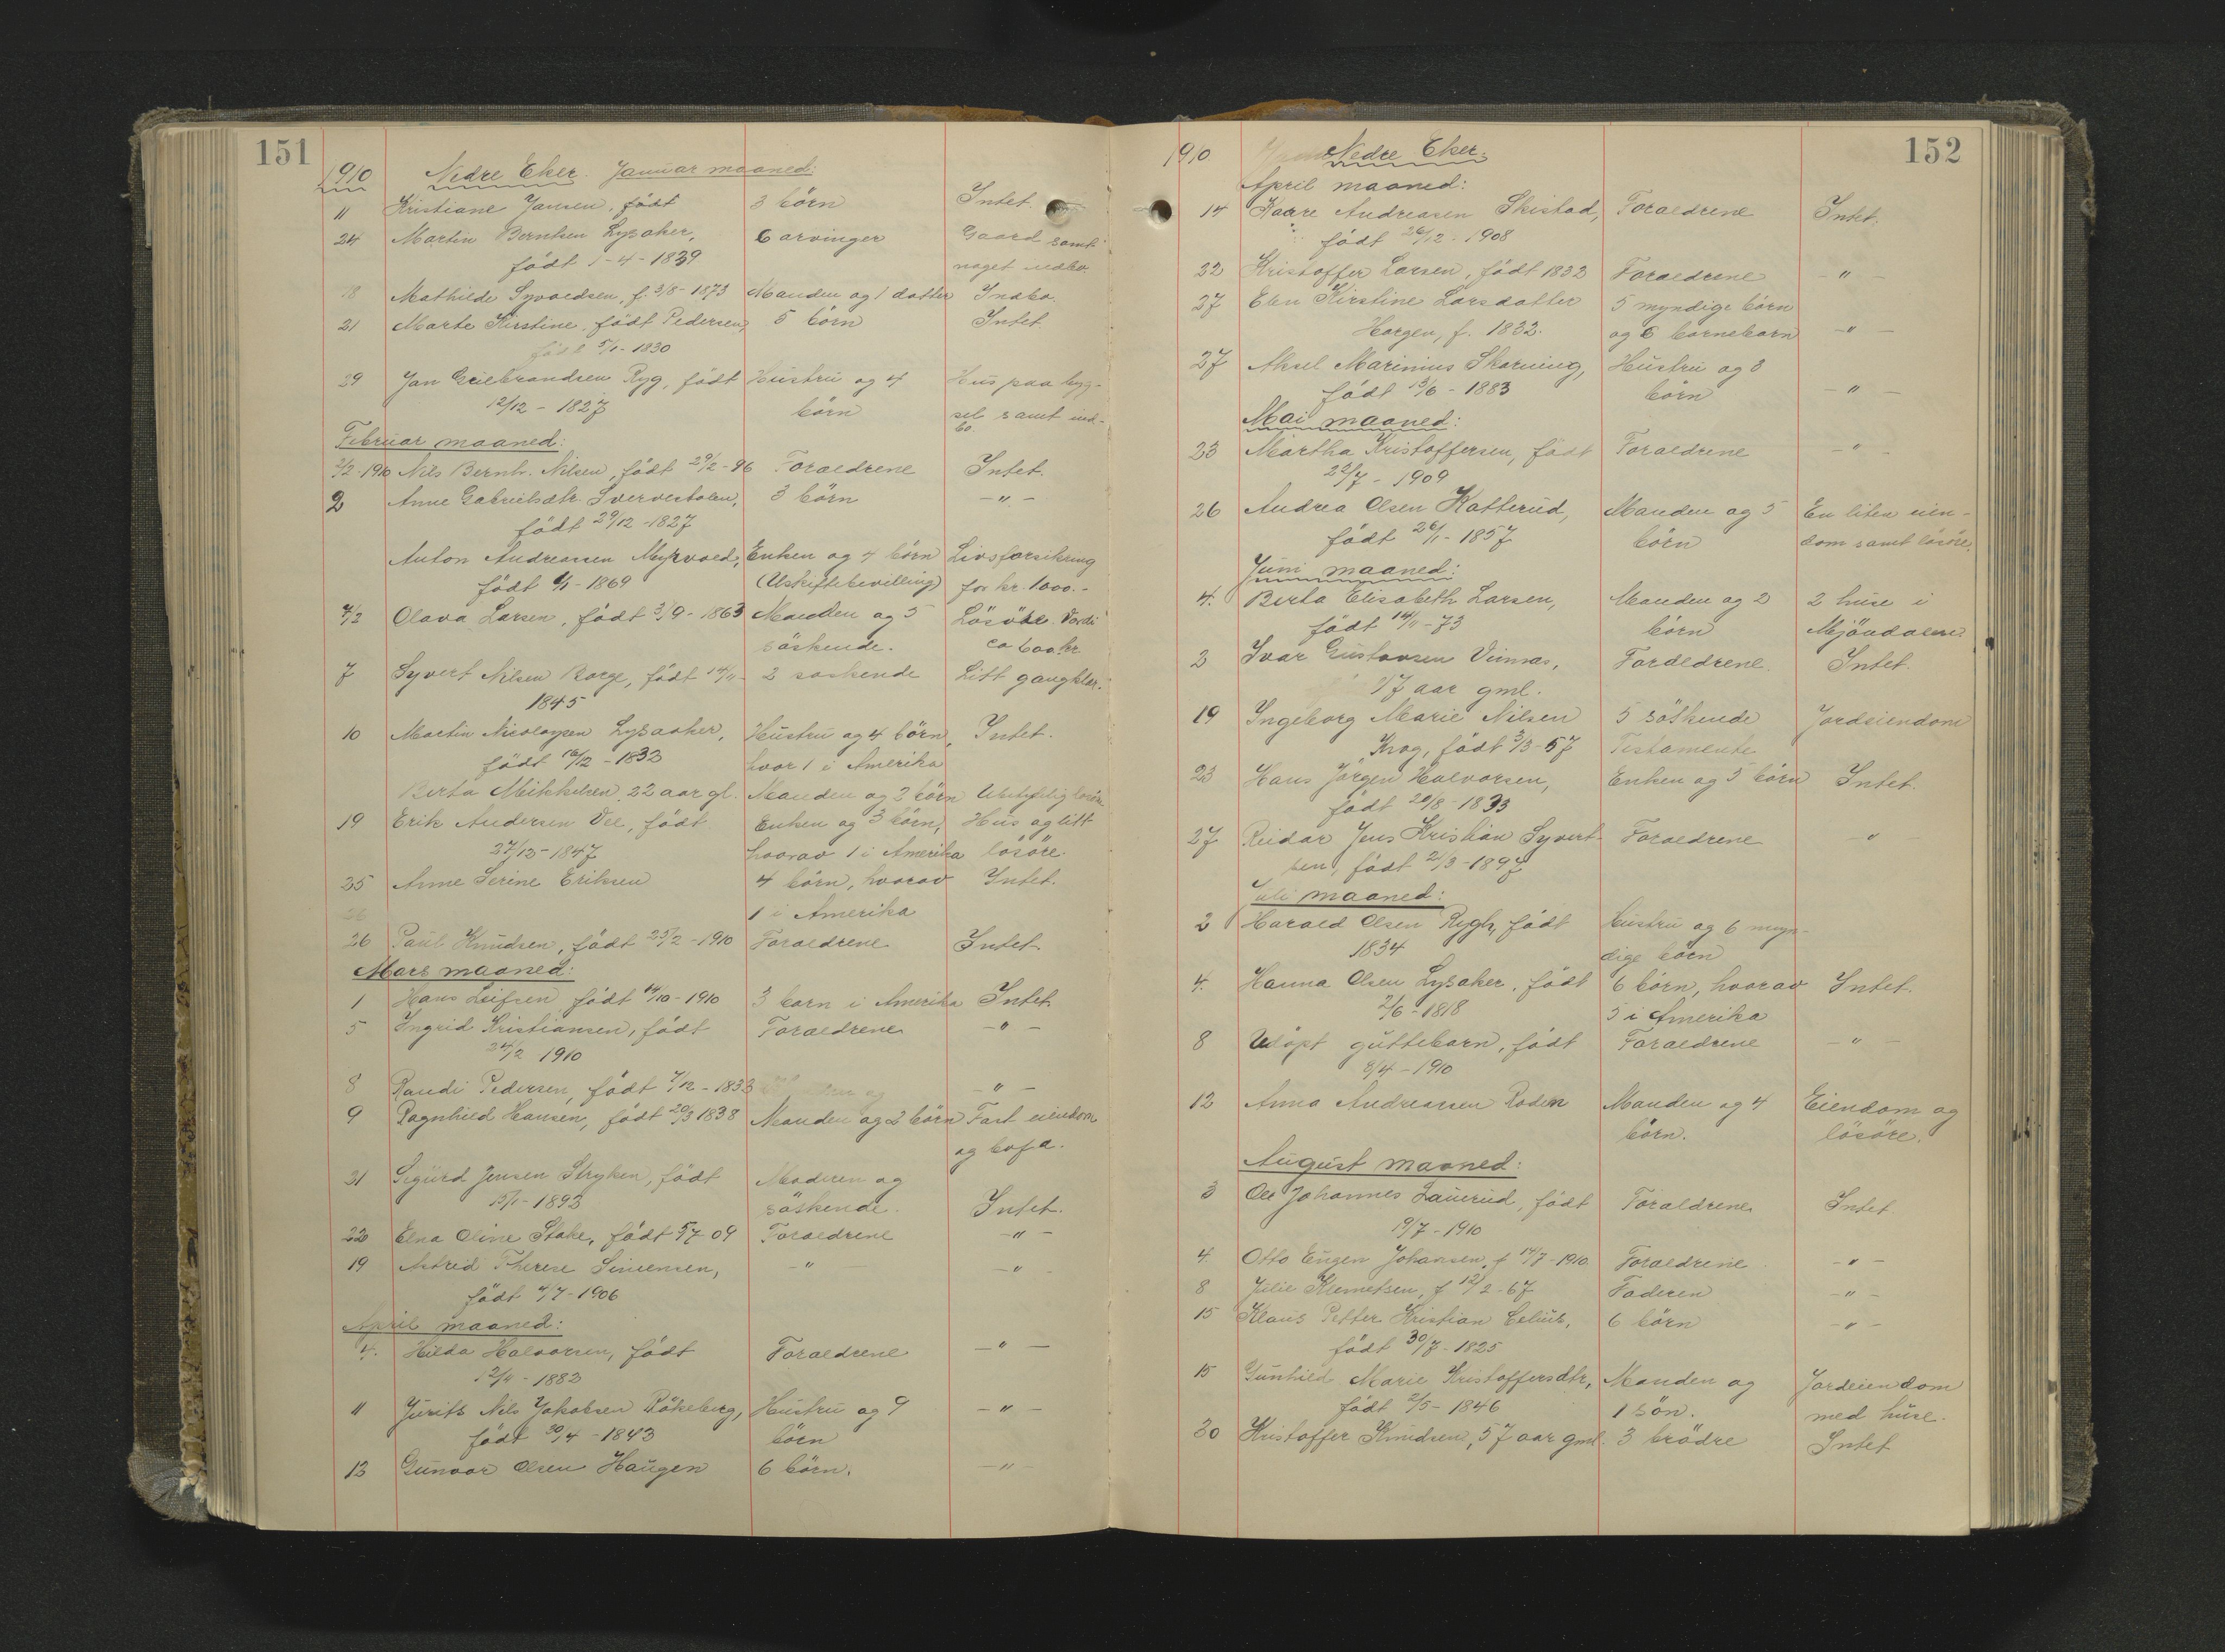 151
1910 Nedre Eker. Januar maaned:
11 Kristiane Jansen, født 3 börn Intet.
24 Martin Berntsen Lysaker, 6 arvinger Gaard samt
født 1-4-1839 noget indbo
18 Mathilde Syvoldsen, f. 3/8-1873 Manden og 1 datter Indbo
21 Marte Kirstine, født Pedersen, 5 börn Intet
født 5/1-1830
29 Jan Gulbrandsen Ryg, født Hustru og 4 Hus paa byg-
12/12-1827 börn sel samt ind-
bo.
Februar maaned:
2/2-1910 Nils Bernh. Nilsen, født 29/2-96 Foraeldrene Intet.
2 Anne Gabrielsdtr. 3 börn -"-
født 29/12-1827
Anton Andreassen Myrvold, Enken og 4 börn Livsforsikring
født 6/1-1869 (Uskiftebevilling) for kr. 1000.-
7/2 Olava Larsen, født 3/9-1863 Manden og 5 Lösöre. Verdi
söskende. ca 600 kr
7 Syvert Nilsen Borge, født 14/11- 2 soskende Litt gangklær.
1845
10 Martin Nicolaysen Lysaaker, Hustru og 4 börn, Intet.
født 16/12-1832 hvor 1 i Amerika
Berta Mikkelsen 22 aar gl. Manden og 2 börn Ubetydelig losöre
19 Erik Andersen Vee, født Enken og 3 börn, Hus og litt
27/12-1847 hvorav 1 i Amerika losöre.
25 Anne Serine Eriksen 4 börn, hvorav Intet.
26 1 i Amerika
26 Paul Knudsen, født 25/2-1910 Foraeldrene Intet.
Mars maaned:
1 Hans Leifsen født 14/10-1910 3 barn i Amerika Intet.
5 Ingrid Kristiansen, født Foraeldrene -"-
24/2 1910
8 Randi Pedersen, født 7/12-1833 -"-
9 Ragnhild Hansen, født 20/3 1838 Manden og 2 börn Fast eiendom
og bofæ.
21 Sigurd Jensen Stryken, født Moderen og
15/1-1893 söskende. Intet.
22 Elna Oline Stake, født 5/7 09 Foraeldrene -"-
19 Astrid Therese Simensen, -"- -"-
født 4/7-1906
April maaned:
4. Hilda Halvorsen, født Foraeldrene -"-
12/4-1883
11 Jurits Nils Jakobsen Rökeberg, Hustru og 9 -"-
født 30/4-1843 börn
13 Gunvor Olsen Haugen 6 börn. -"-
152
1910 Nedre Eker.
April maaned:
14 Kaare Andreasen Skistad, Foraeldrene Intet.
født 26/12-1908
22 Kristoffer Larsen, født 1832 Foraeldrene -"-
27 Elen Kirstine Larsdatter 5 myndige börn
Horgen, f. 1832. og 6 bornebarn -"-
27 Aksel Marinius Skorning, Hustru og 3
født 13/6-1883 börn -"-
Mai maaned:
23 Martha Kristoffersen, født Foraeldrene -"-
22/7-1909
26 Andrea Olsen Katterud, Manden og 5 En liten eien-
født 26/1-1857 börn dom samt lösöre.
Juni maaned:
4. Berta Elisabeth Larsen, Manden og 2 2 huse i
født 14/11-73 börn Mjöndalen.
2 Ivar Gustavsen Vinnas, Foraeldrene. Intet.
17 aar gml.
19 Ingeborg Marie Nilsen 5 söskende Jordeiendom
Krog, født 3/3-57 Testamente
23 Hans Jörgen Halvorsen, Enken og 5 börn Intet.
født 20/8-1833
27 Reidar Jens Kristian Syvert- Foraeldrene "
sen, født 21/3-1897
Juli maaned:
2 Harald Olsen Rygh, født Hustru og 6 myn-
1834 dige börn
4. Hanna Olsen Lysaker, født 6 börn, hvorav Intet.
2/6-1818 5 i Amerika
8 Udöpt guttebarn, født Foraeldrene -"-
8/4-1910
12 Anna Andreassen Roden Manden og 4 Eiendom og
börn. lösöre.
August maaned:
3 Ole Johannes Lauerud, født Foraldrene Intet
19/7-1910
4. Otto Eugen Johansen, f 14/7-1910. Foraeldrene -"-
8 Julie Klemetsen, f 12/2-67 Faderen -"-
15 Klaus Petter Kristian Celius, 6 börn -"-
født 30/7-1825
15 Gunhild Marie Kristoffersdtr, Manden og Jordeiendom
født 2/5-1846 1 sön. med huse.
30 Kristoffer Knudsen, 57 aar gml. 3 brödre Intet